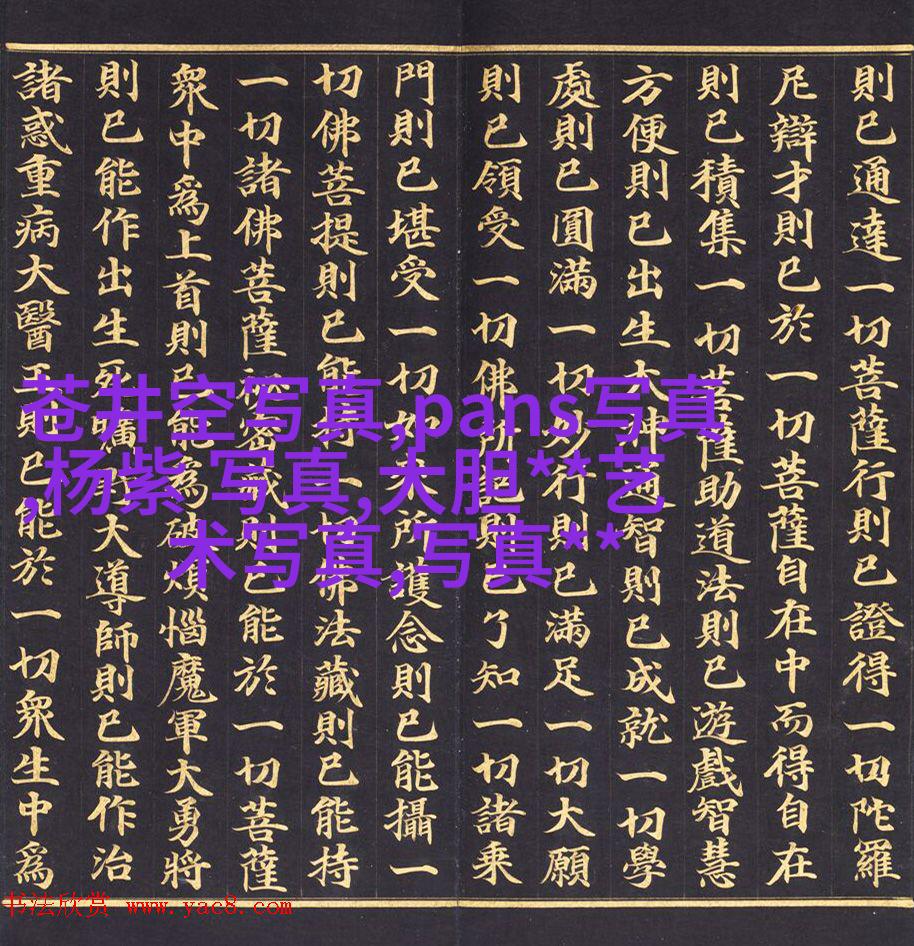 則已通達一切菩薩行則已證得一切陀羅
尼辯才則已於一切菩薩自在中而得自在
則已積集一切菩薩助道法則已遊戲智慧
方便則已出生大神通智則已成就一切學
處則已圓滿一切妙行則已滿足一切大願
則已領受一切佛所記則已了知一切諸乘
門則已堪受一切如來所護念則已能攝一
切佛菩提則已能一切佛法藏則已能持
一切諸佛菩薩祕密藏則已能於一切菩薩
衆中爲上首則已能爲破煩惱魔軍大勇將
則已能作出生死曠野大導師則已能作治
諸惑重病大醫王則已能於一切衆生中爲
苍井空写真,pans写真
,杨紫 写真,大胆**艺
术写真,写真**
书法欣赏 www.yac8.com